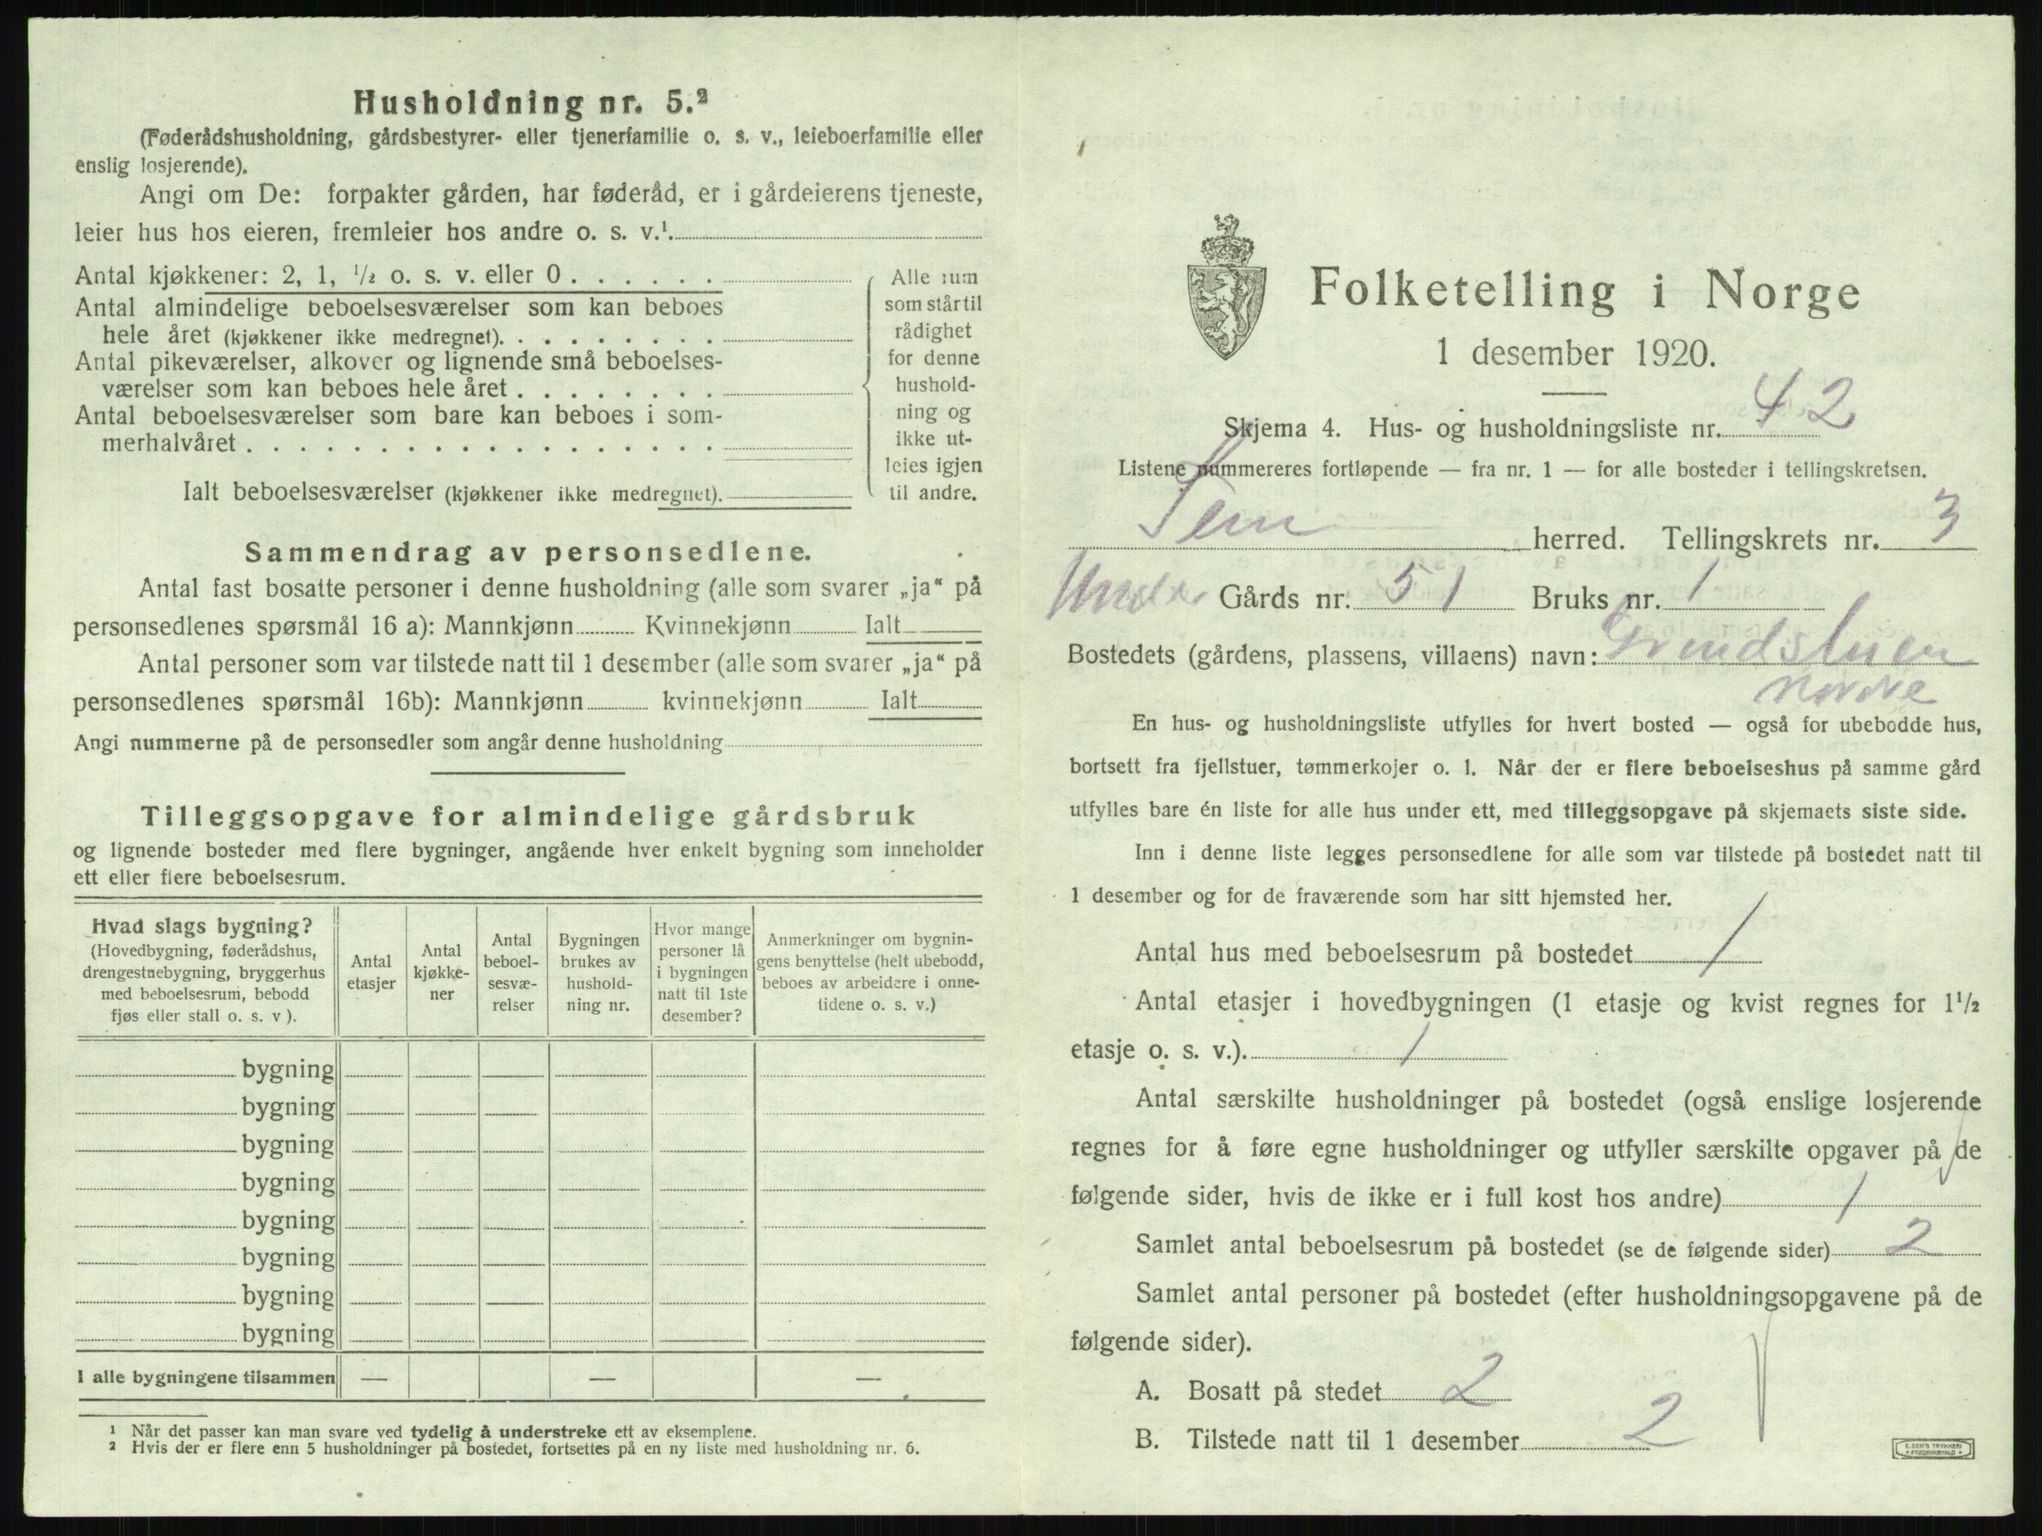 Husholdning nr. 5.²
(Føderådshusholdning, gårdsbestyrer- eller tjenerfamilie o. s. v., leieboerfamilie eller
enslig losjerende).
Angi om De: forpakter gården, har føderåd, er i gårdeierens tjeneste,
leier hus hos eieren, fremleier hos andre o. s. v.¹
Antal kjøkkener: 2, 1, ½ o. s. v. eller 0 . . . . . .
Antal almindelige beboelsesværelser som kan beboes
hele året (kjøkkener ikke medregnet). . . . . . . . .
Antal pikeværelser, alkover og lignende små beboelses-
værelser som kan beboes hele året . . . . . . . .
Antal beboelsesværelser som bare kan beboes i som-
merhalvåret . . . . . . . . . . . . . . . . . .
Ialt beboelsesværelser (kjøkkener ikke medregnet).
Alle rum
som står til
rådighet
for denne
hushold-
ning og
ikke ut-
leies igjen
til andre.
Sammendrag av personsedlene.
Antal fast bosatte personer i denne husholdning (alle som svarer „ja“ på
personsedlenes spørsmål 16 a): Mannkjønn Kvinnekjønn Ialt
Antal personer som var tilstede natt til 1 desember (alle som svarer „ja“ på
personsedlenes spørsmål 16b): Mannkjønn kvinnekjønn Ialt
Angi nummerne på de personsedler som angår denne husholdning
Tilleggsopgave for almindelige gårdsbruk
og lignende bosteder med flere bygninger, angående hver enkelt bygning som inneholder
ett eller flere beboelsesrum.
Hvad slags bygning?
(Hovedbygning, føderådshus,
drengestuebygning, bryggerhus
med beboelsesrum, bebodd
fjøs eller stall o. s. v ).
Antal
etasjer
Antal
kjøkke-
ner
Antal
beboel-
sesvæ-
relser
Bygningen
brukes av
hushold-
ning nr.
Hvor mange
personer lå
i bygningen
natt til 1ste
desember?
Anmerkninger om bygnin-
gens benyttelse (helt ubebodd,
beboes av arbeidere i onne-
tidene o. s. v.)
bygning
bygning
bygning
bygning
bygning
bygning
bygning
bygning
I alle bygningene tilsammen — — —
¹ Når det passer kan man svare ved tydelig å understreke ett av eksemplene.
² Hvis der er flere enn 5 husholdninger på bostedet, fortsettes på en ny liste med husholdning nr. 6.
Folketelling i Norge
1 desember 1920.
Skjema 4. Hus- og husholdningsliste nr. 42
Listene nummereres fortløpende — fra nr. 1 — for alle bosteder i tellingskretsen.
Sem herred. Tellingskrets nr. 3
Under Gårds nr. 51 Bruks nr. 1
Bostedets (gårdens, plassens, villaens) navn: Grindstuen
nordre
En hus- og husholdningsliste utfylles for hvert bosted — også for ubebodde hus,
bortsett fra fjellstuer, tømmerkojer o. l. Når der er flere beboelseshus på samme gård
utfylles bare én liste for alle hus under ett, med tilleggsopgave på skjemaets siste side.
Inn i denne liste legges personsedlene for alle som var tilstede på bostedet natt til
1 desember og for de fraværende som har sitt hjemsted her.
Antal hus med beboelsesrum på bostedet 1
Antal etasjer i hovedbygningen (1 etasje og kvist regnes for 1½
etasje o. s. v.). 1
Antal særskilte husholdninger på bostedet (også enslige losjerende
regnes for å føre egne husholdninger og utfyller særskilte opgaver på de
følgende sider, hvis de ikke er i full kost hos andre) 1
Samlet antal beboelsesrum på bostedet (se de følgende sider) 2
Samlet antal personer på bostedet (efter husholdningsopgavene på de
følgende sider).
A. Bosatt på stedet 2
B. Tilstede natt til 1 desember 2
E. SEM'S TRYKKERI
FREDRIKSHALD